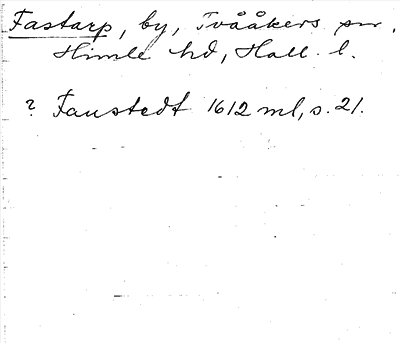 Fastarp, by, Tvååkers sn,
Himle hd, Hall. l.
? Faustedt 1612 ml, s. 21.